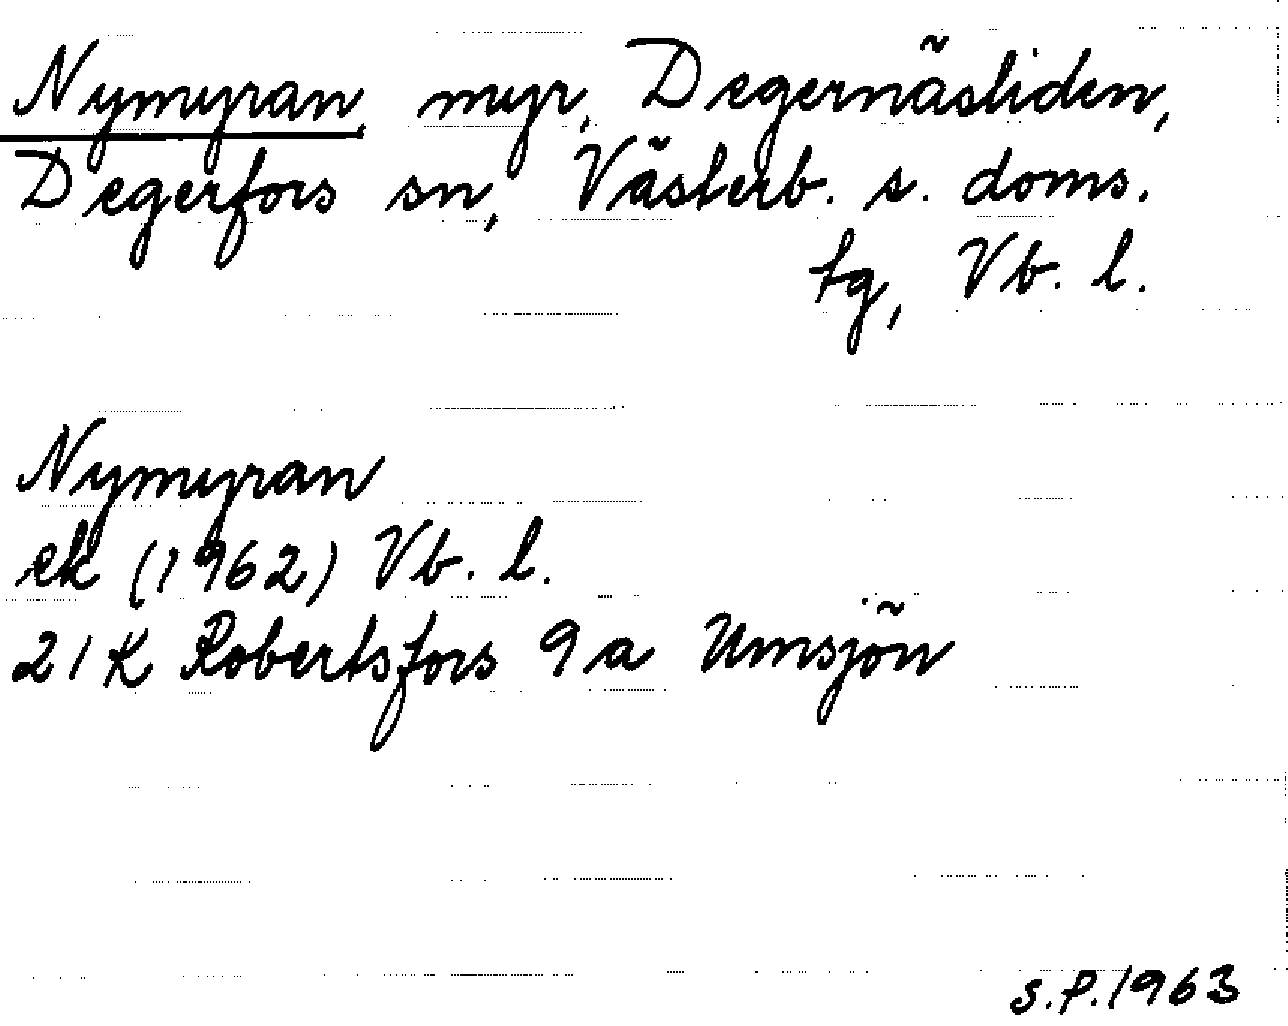 Nymyran, myr, Degernäsliden,
Degerfors sn, Västerb. s. doms.
tg, Vb. l.
Nymyran
ek (1962) Vb. l.
21 K Robertsfors 9 a Umsjön
S.P. 1963